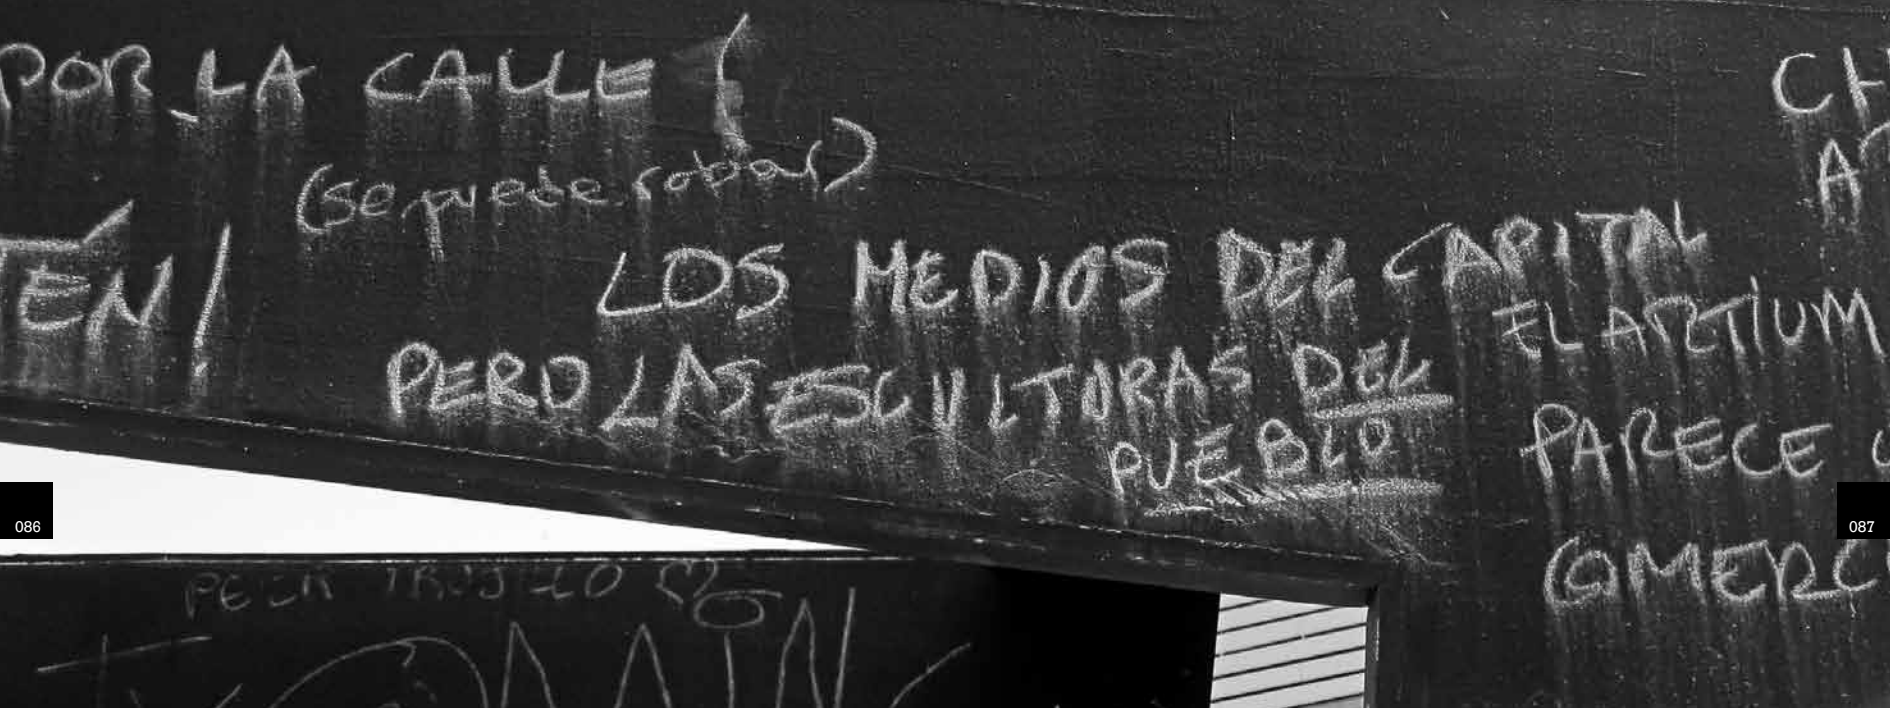 POR LA CALLE
(se puede robar)
TEN!
LOS MEDIOS DEL CAPITAL
PERO LAS ESCULTORAS DEL
PUEBLO
CH
AR
EL ARTIUM
PARECE
COMERC
086
087